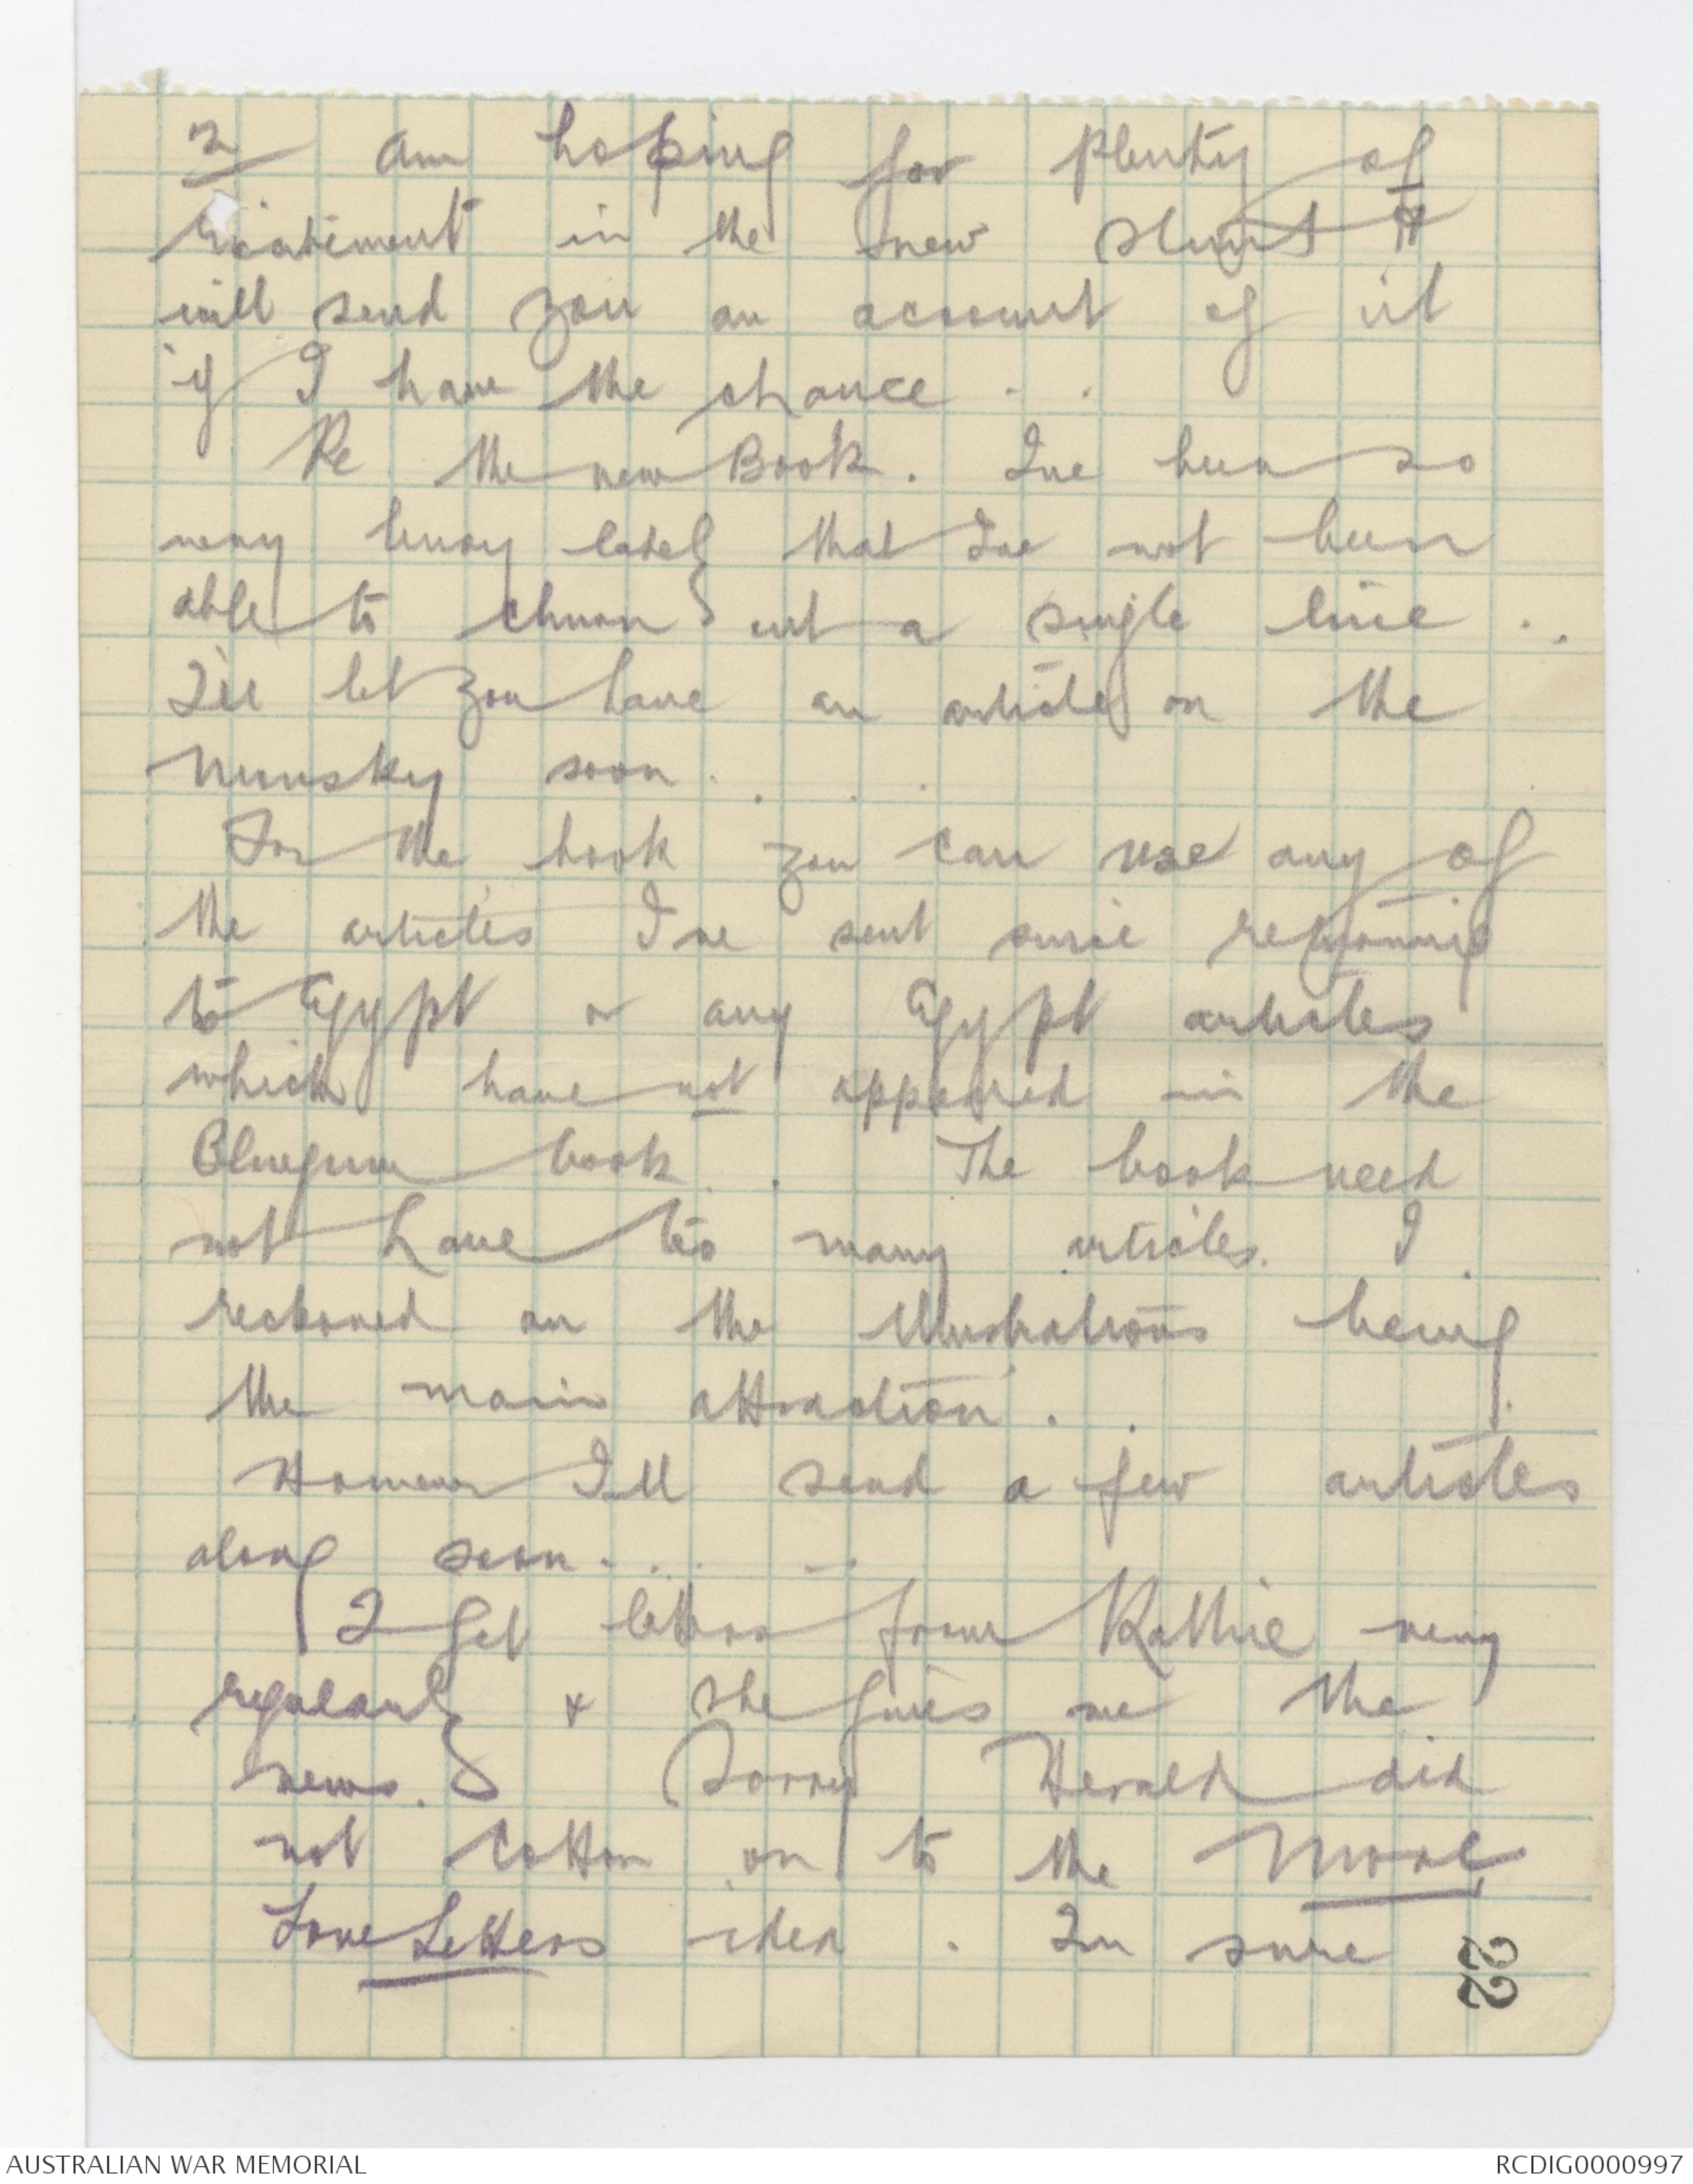 2/ Am hoping for plenty of
excitement in the new stunt &
will send you an account of it
if I have the chance . .
Re the new Book. Ive been so
very busy lately that Ive not been
able to churn out a single line . .
I'll let you have an article on the
soon . . . .
For the book you can use any of
the articles I've sent since returning
to Egypt or any Egypt articles
which have not appeared in the
Bluegum book . . The book need
not have too many articles. I
reckoned on the illustrations being
the main attraction . .
However I'll send a few articles
along soon . . . . .
I get letters from Kathie very
regularly & she gives me the
news. Sorry Herald did
not cotton on to the
Love Letters idea . Im sure
22
AUSTRALIAN WAR MEMORIAL
RCDIG0000997